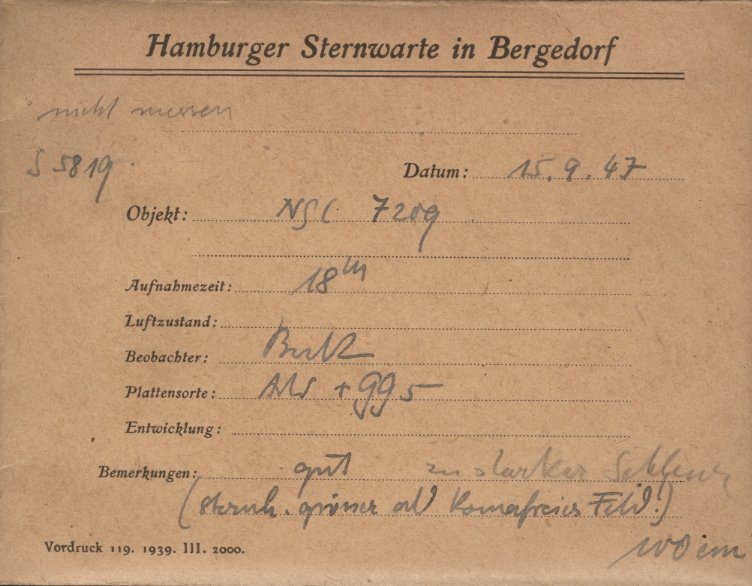 Hamburger Sternwarte in Bergedorf
nicht messen
S 5819
Datum: 15.9.47
Objekt: NGC 7209
Aufnahmezeit: 18m
Luftzustand:
Beobachter:
Plattensorte: + GG 5
Entwicklung:
Bemerkungen: gut zu starker Schleier
(Sternh. grösser als Komafreies Feld!)
Vordruck 119. 1939. III. 2000.
100 cm